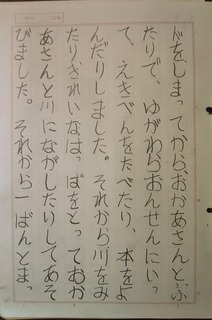 ドをしまってから、おかあさんとふ
たりで、ゆがわらおんせんにいっ
て、えきべんをたべたり、本をよ
んだりしました。それから川をみ
たりきれいなはっぱをとっておか
あさんと川にながしたりしてあそ
びました。それから一ばんとまっ